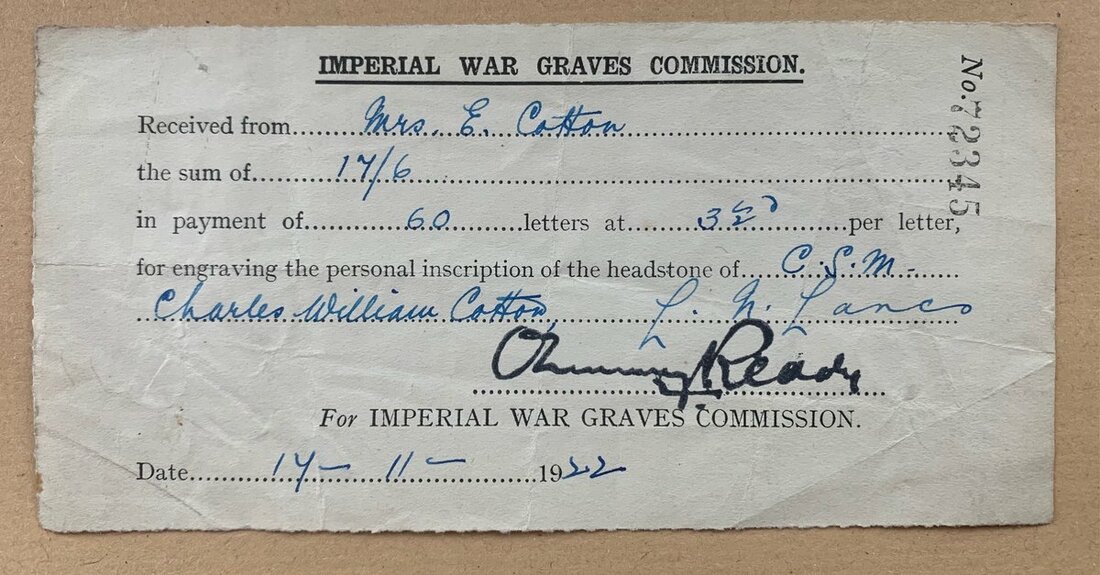 IMPERIAL WAR GRAVES COMMISSION.
No. 72345
Received from Mrs. E. Cotton
the sum of 17/6
in payment of 60 letters at 3½d per letter,
for engraving the personal inscription of the headstone of C.S.M.-
Charles William Cotton, L. N. Lancs
Ready
For IMPERIAL WAR GRAVES COMMISSION.
Date 17 - 11 - 1922